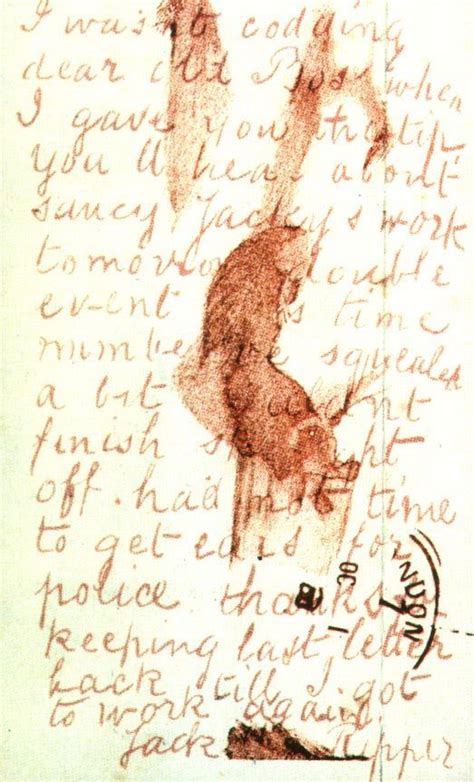 I wasnt codding
dear old Boss when
I gave you the tip.
youll hear about
saucy Jackys work
tomorrow double
event time
number squealed
a bit couldnt
finish
off. had not time
to get ears for
police thanks
keeping last letter
back till I got
to work again
Jack Ripper
30